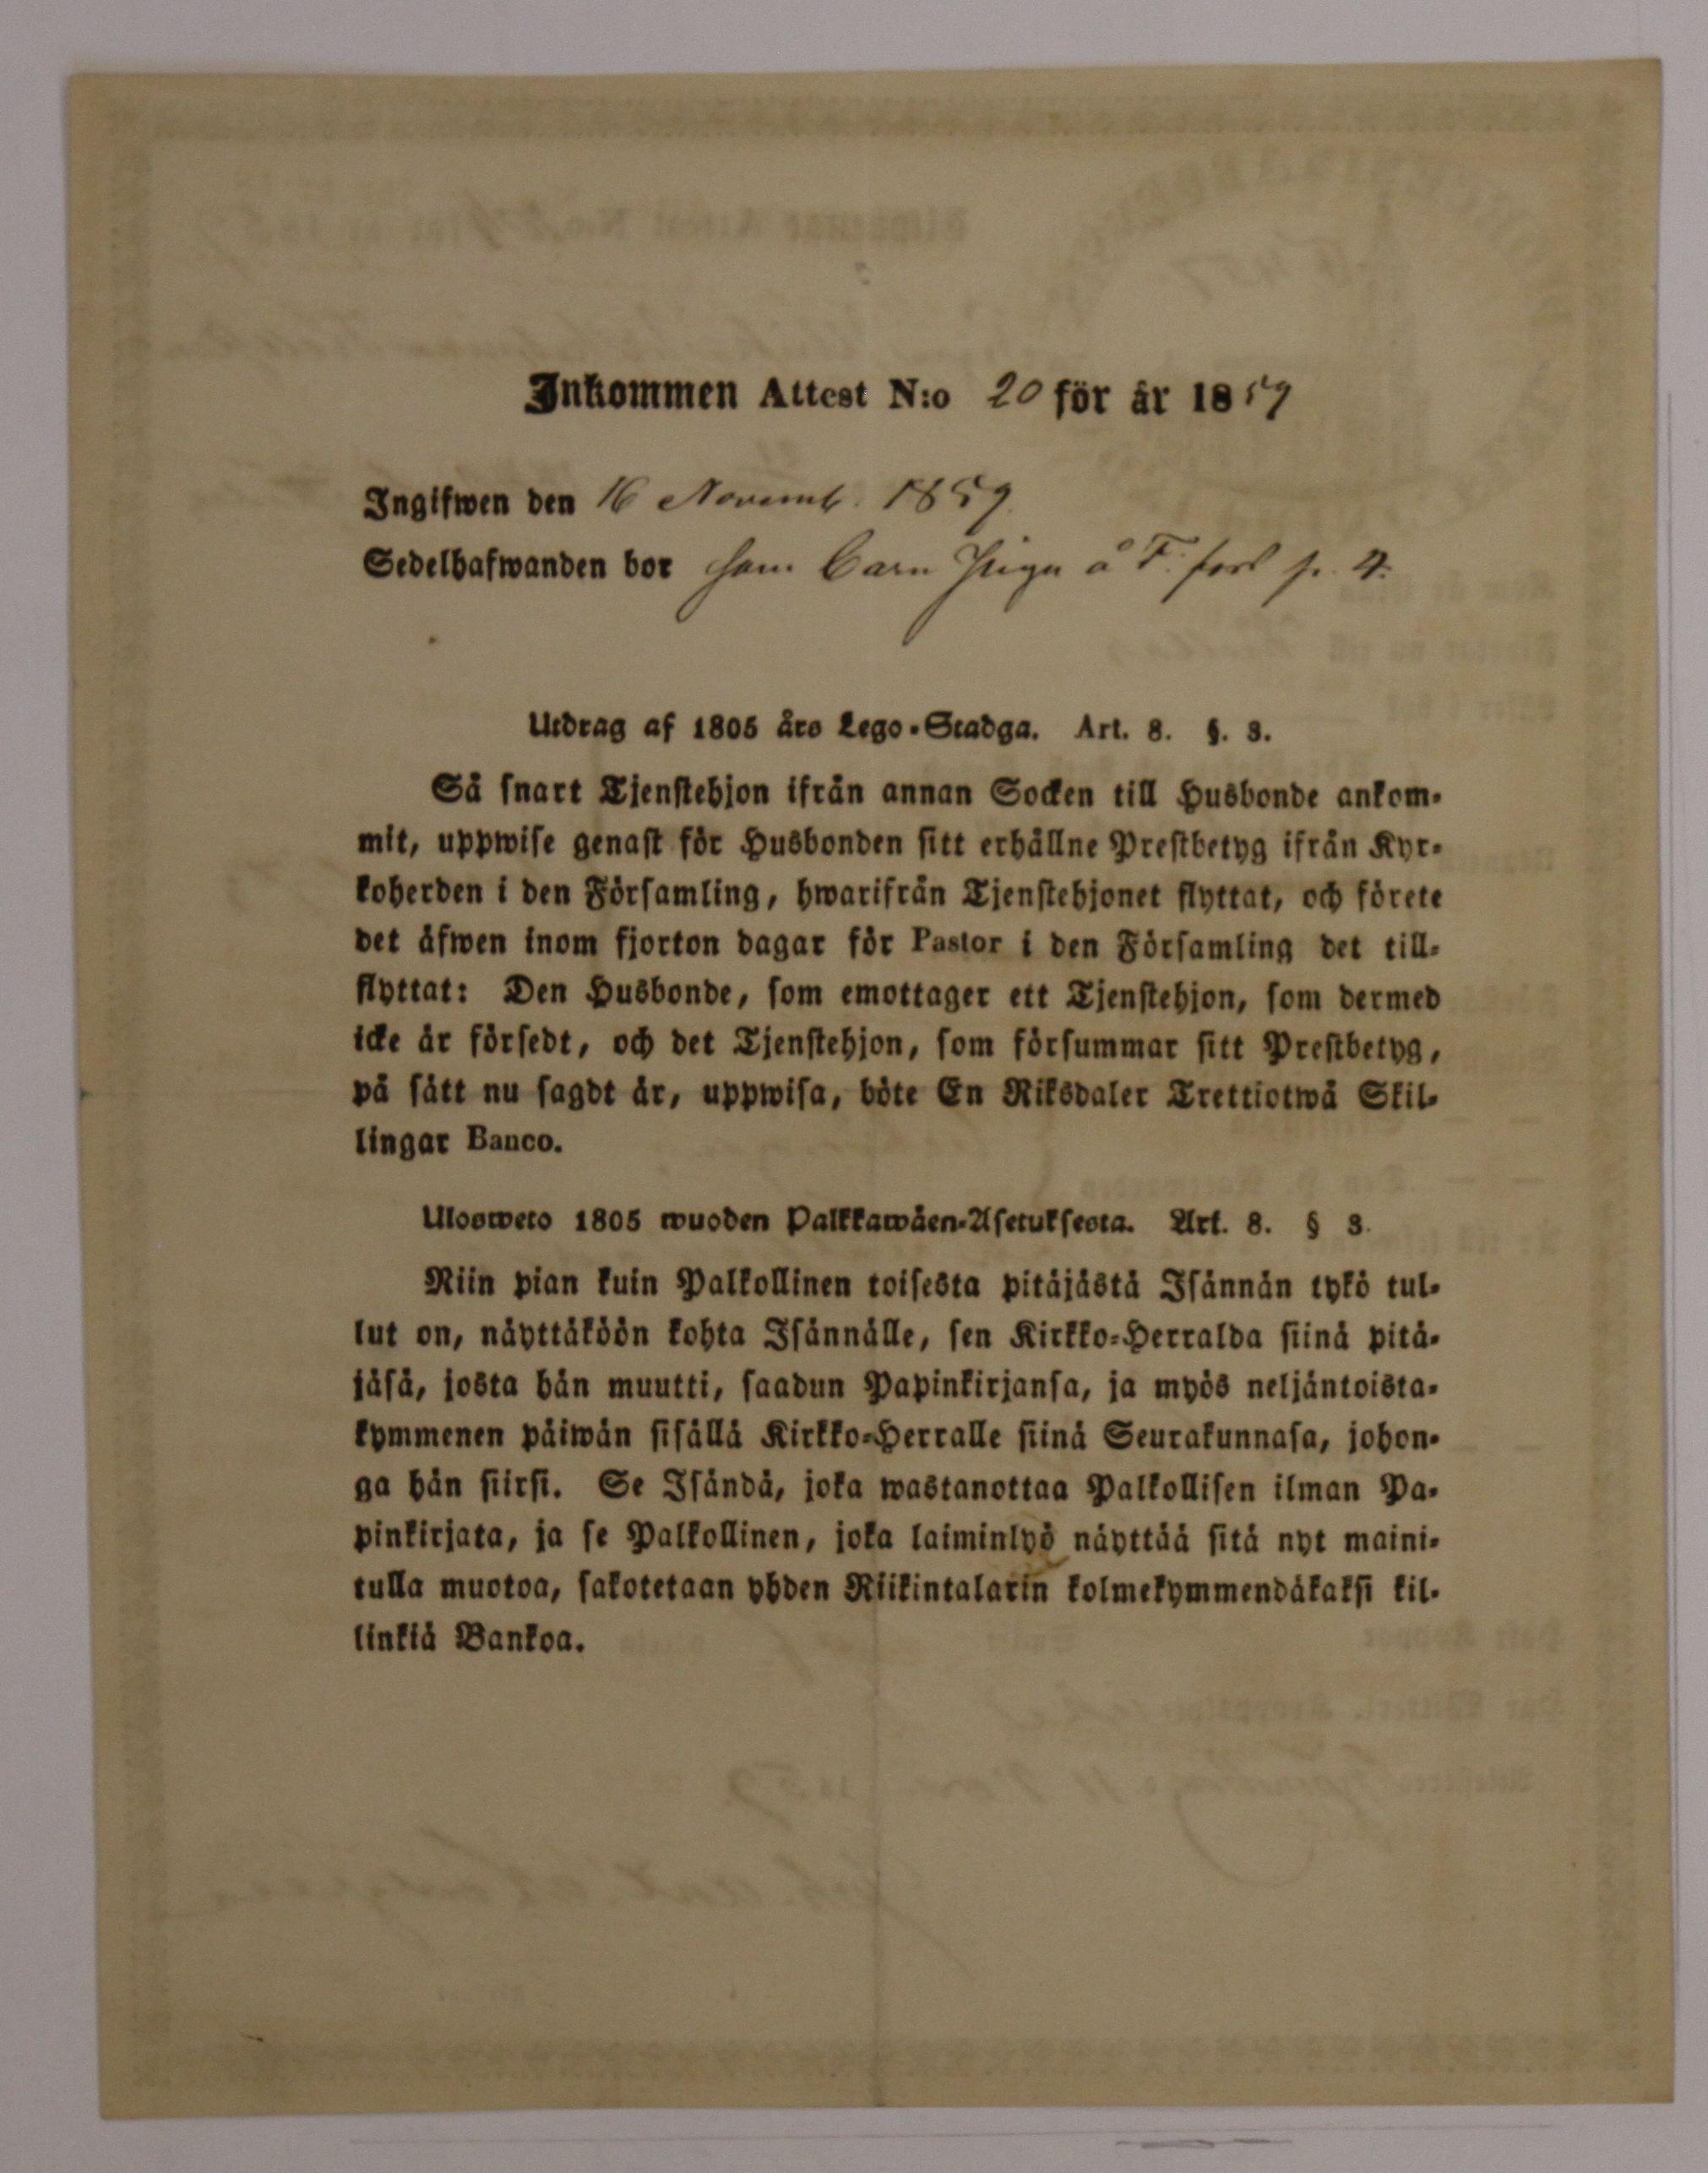 Inkommen Attest N:o 20 för år 1859
Ingifwen den 16 Novemb. 1859.
Sedelhafwanden bor som Barn Piga å F. p. 4.
Utdrag af 1805 års Lego-Stadga. Art. 8. §. 3.
Så snart Tjenstehjon ifrån annan Socken till Husbonde ankom-
mit, uppwise genast för Husbonden sitt erhållne Prestbetyg ifrån Kyr-
koherden i den Församling, hwarifrån Tjenstehjonet flyttat, och förete
det äfwen inom fjorton dagar för Pastor i den Församling det till-
flyttat: Den Husbonde, som emottager ett Tjenstehjon, som dermed
icke är försedt, och det Tjenstehjon, som försummar sitt Prestbetyg,
på sätt nu sagdt är, uppwisa, böte En Riksdaler Trettiotwå Skil-
lingar Banco.
Ulosweto 1805 wuoden Palkkawäen-Asetuksesta. Art. 8. § 3.
Niin pian kuin Palkollinen toisesta pitäjästä Isännän tykö tul-
lut on, näyttäköön kohta Isännälle, sen Kirkko-Herralda siinä pitä-
jäsä, josta hän muutti, saadun Papinkirjansa, ja myös neljäntoista-
kymmenen päiwän sisällä Kirkko-Herralle siinä Seurakunnasa, johon-
ga hän siirsi. Se Isändä, joka wastanottaa Palkollisen ilman Pa-
pinkirjata, ja se Palkollinen, joka laiminlyö näyttää sitä nyt maini-
tulla muotoa, sakotetaan yhden Riikintalarin kolmekymmendäkaksi kil-
linkiä Bankoa.